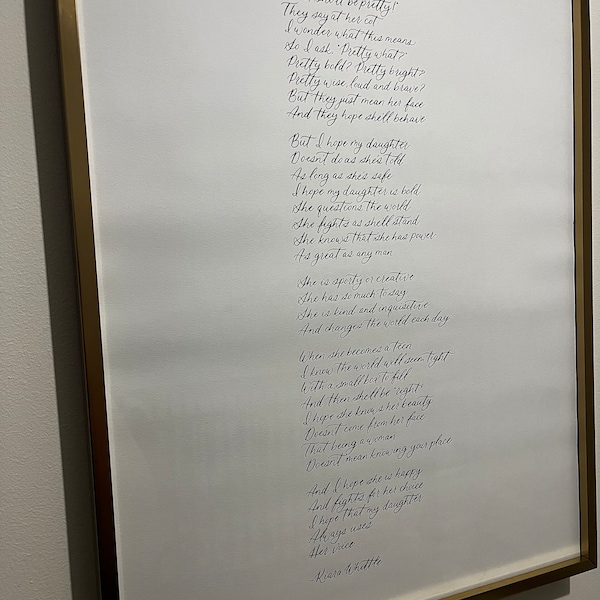 be pretty!"
They say at her cot
I wonder what this means
So I ask "Pretty what?"
Pretty bold? Pretty bright?
Pretty wise, loud and brave?
But they just mean her face
And they hope shell behave
But I hope my daughter
Doesnt do as shes told
As long as shes safe
I hope my daughter is bold
She questions the world
She fights as shell stand
She knows that she has power
As great as any man
She is sporty or creative
She has so much to say
She is kind and inquisitive
And changes the world each day
When she becomes a teen
I know the world will seem tight
With a small box to fill
And then shell be "right"
I hope she knows her beauty
Doesnt come from her face
That being a woman
Doesnt mean knowing your place
And I hope she is happy
And fights for her choice
I hope that my daughter
Always uses
Her voice
Kiara Whittle